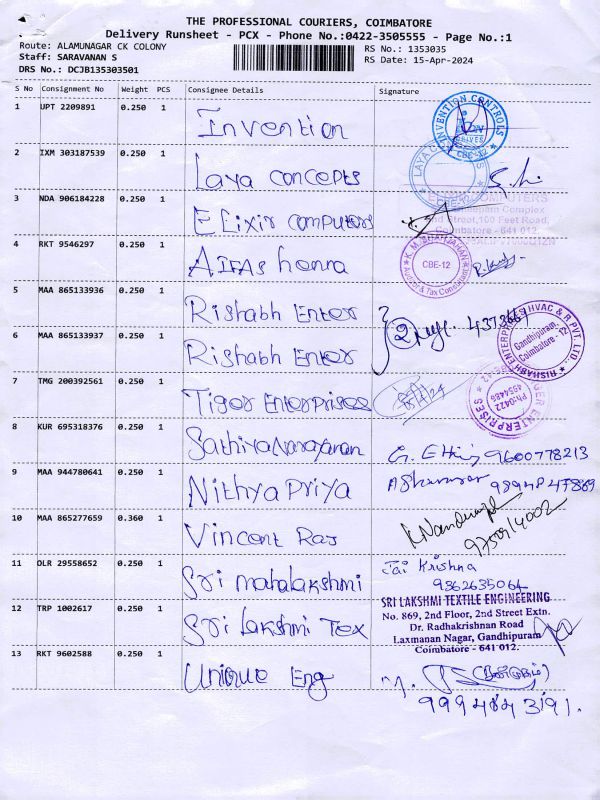 THE PROFESSIONAL COURIERS, COIMBATORE
Delivery Runsheet - PCX - Phone No.:0422-3505555 - Page No.:1
Route: ALAMUNAGAR CK COLONY
Staff: SARAVANAN S
DRS No.: DCJB135303501
RS No.: 1353035
RS Date: 15-Apr-2024
S No Consignment No Weight PCS Consignee Details Signature
1 UPT 2209891 0.250 1 Invention
INVENTION CONTROLS
CBE-12
2 IXM 303187539 0.250 1 Laya concepts
3 NDA 906184228 0.250 1 Elixir computers
COMPUTERS
Complex
2nd Street, 100 Feet Road,
Coimbatore - 641 012.
4 RKT 9546297 0.250 1 AIFAs honna
K.M. SHAHJAHAN
Auditor & Tax Consultant
CBE-12
5 MAA 865133936 0.250 1 Rishabh Enter
6 MAA 865133937 0.250 1 Rishabh Enter
RISHABH ENTERPRISES HVAC & R PVT. LTD.
Gandhipuram,
Coimbatore - 12
7 TMG 200392561 0.250 1 Tiger Enterprises
TIGER ENTERPRISES
Ph:0422
4955486
8 KUR 695318376 0.250 1 Sathiyanarayanan
9600778213
9 MAA 944780641 0.250 1 Nithya Priya
10 MAA 865277659 0.360 1 Vincent Raj
11 DLR 29558652 0.250 1 Sri mahalakshmi Jai Krishna
9862635064
12 TRP 1002617 0.250 1 Sri Lakshmi Tex
SRI LAKSHMI TEXTILE ENGINEERING
No. 869, 2nd Floor, 2nd Street Extn.
Dr. Radhakrishnan Road
Laxmanan Nagar, Gandhipuram
Coimbatore - 641 012.
13 RKT 9602588 0.250 1 Unique Eng